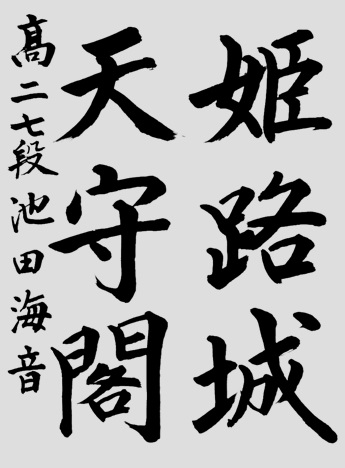 姫路城
天守閣
髙二七段池田海音